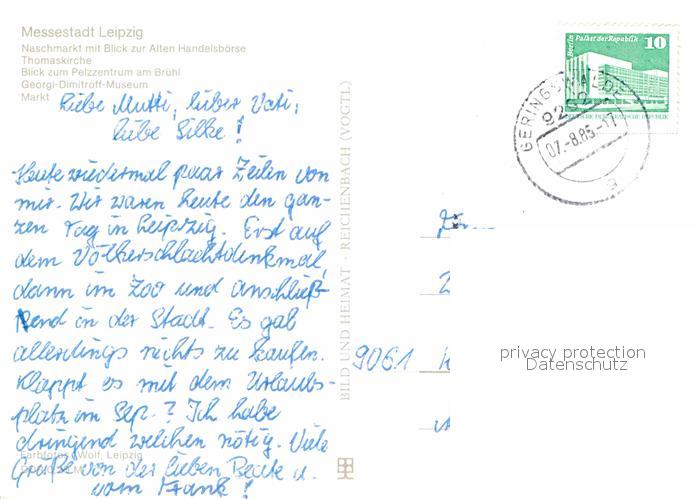 Messestadt Leipzig
Naschmarkt mit Blick zur Alten Handelsbörse
Thomaskirche
Blick zum Pelzzentrum am Brühl
Georgi-Dimitroff-Museum
Markt
Liebe Mutti, lieber Vati,
liebe Silke!
Heute wiedermal paar Zeilen von
mir. Wir waren heute den gan-
zen Tag in Leipzig. Erst auf
dem Völkerschlachtdenkmal,
dann im Zoo und anschließ-
end in der Stadt. Es gab
allerdings nichts zu kaufen.
Klappt es mit dem Urlaubs-
platz im Sep.? Ich habe
dringend welchen nötig. Viele
Grüße von der lieben Beate u.
vom Frank!
Farbfotos: Wolf, Leipzig
BILD UND HEIMAT · REICHENBACH (VOGTL)
Berlin Palast der Republik 10
DEUTSCHE DEMOKRATISCHE REPUBLIK
GERINGSWALDE
07.-8.85.-17
a
9061
privacy protection
Datenschutz